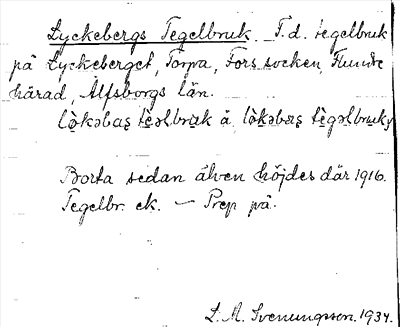 Lyckebergs Tegelbruk. F.d. tegelbruk
på Lyckeberget, Torpa, Fors socken, Flundre
härad, Älfsborgs län.
lo̱kəbas te̱əlbruk å, lo̱kəbas te̱gəlbruk,
Borta sedan älven höjdes där 1916.
Tegelbr. ek. — Prep på.
L. A. Svenungsson. 1934.